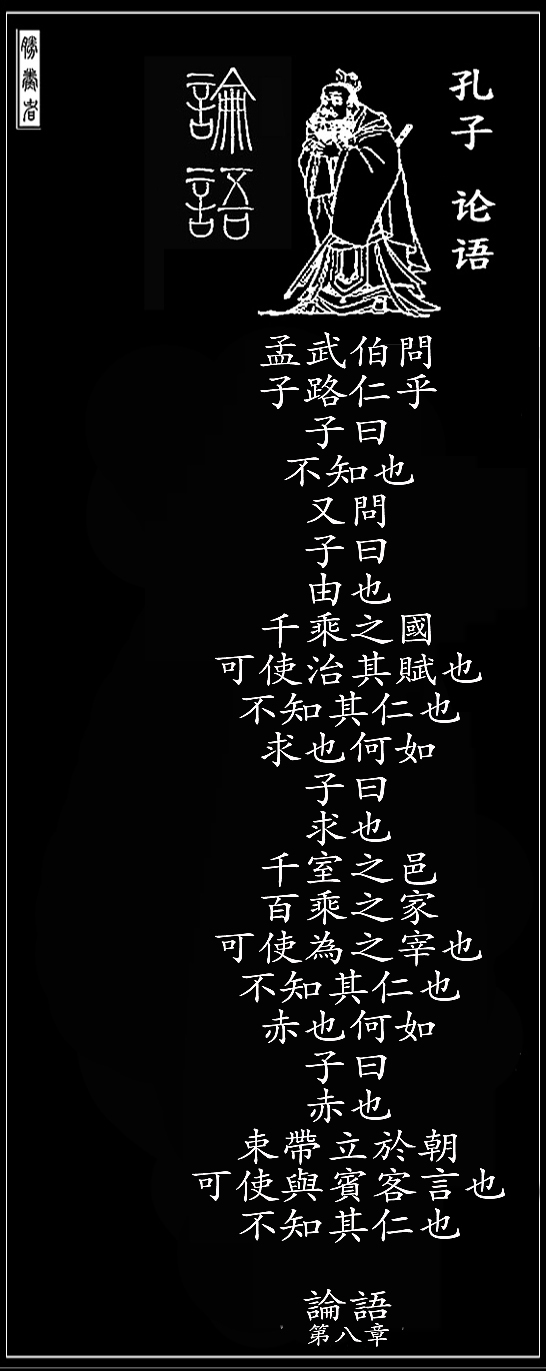 孔子 论语
論語
孟武伯問
子路仁乎
子曰
不知也
又問
子曰
由也
千乘之國
可使治其賦也
不知其仁也
求也何如
子曰
求也
千室之邑
百乘之家
可使為之宰也
不知其仁也
赤也何如
子曰
赤也
束帶立於朝
可使與賓客言也
不知其仁也
論語
第八章